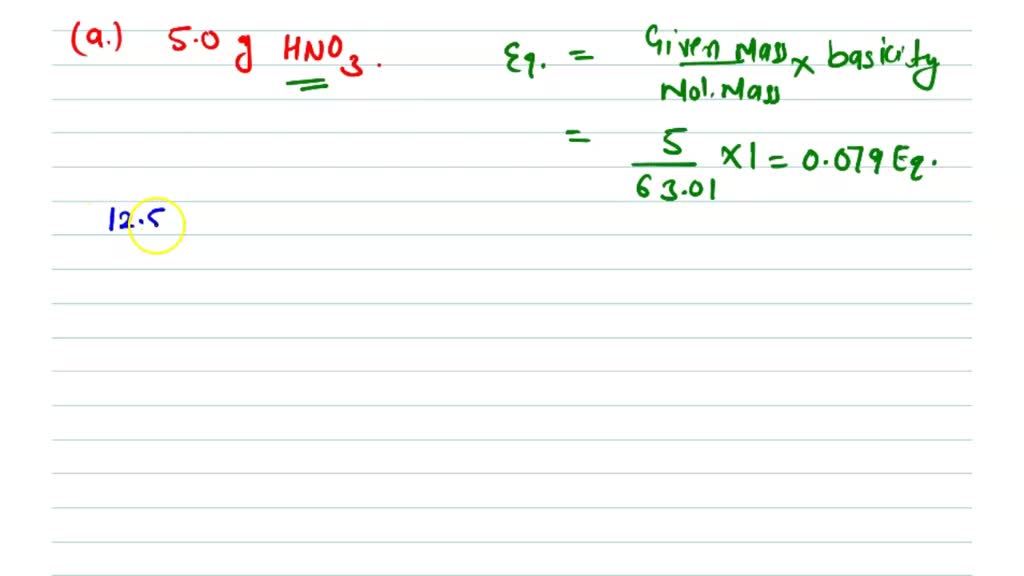 (a.) 5.0 g HNO3.
Eq. = Given Mass / Mol. Mass × basicity
= 5 / 63.01 × 1 = 0.079 Eq.
12.5